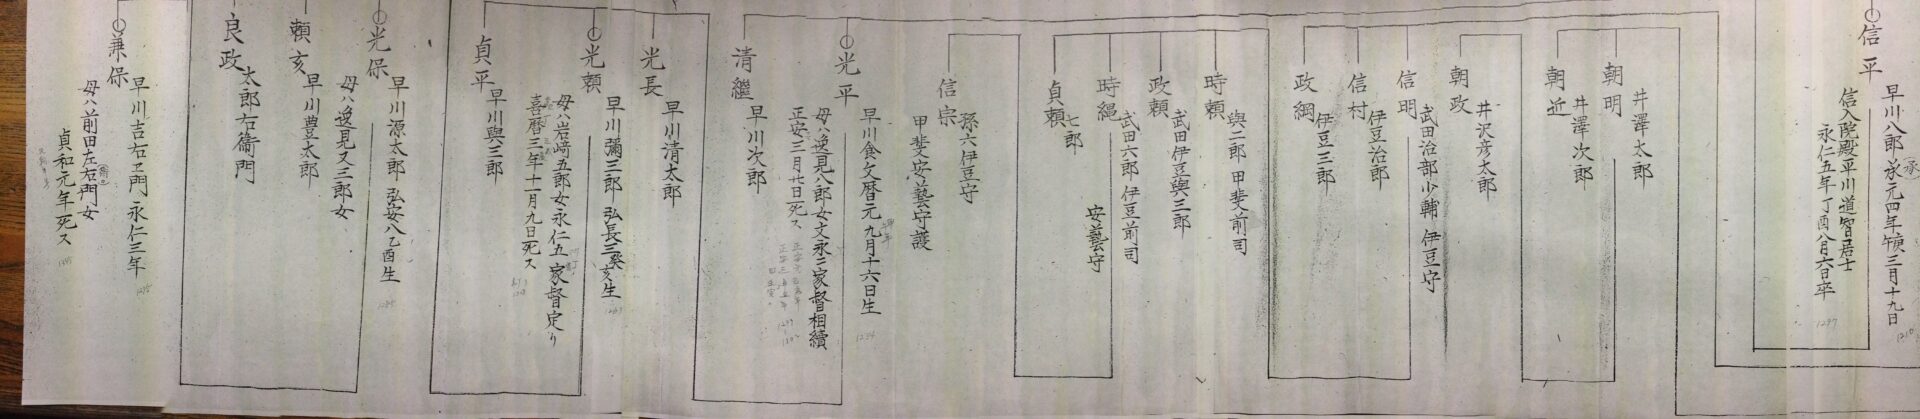 信平
早川八郎 承元四年庚午三月十九日
1210
信入院殿平川道智居士
永仁五年丁酉八月六日卒
1297
朝明
井澤太郎
朝近
井澤次郎
朝政
井沢彦太郎
信明
武田治部少輔 伊豆守
信村
伊豆治郎
政綱
伊豆三郎
時頼
與二郎 甲斐前司
政頼
武田伊豆與三郎
時縄
武田六郎 伊豆前司
安藝守
貞頼
七郎
信宗
孫六伊豆守
甲斐安藝守護
光平
早川食文暦元 九月十六日生
1234
母ハ逸見八郎女文永二家督相續
正安三月七日死ス
清繼
早川次郎
光長
早川清太郎
光頼
早川彌三郎 弘長三癸亥生
1263
母ハ岩﨑五郎女永仁五 家督定り
喜暦三年十一月九日死ス
貞平
早川與三郎
光保
早川源太郎 弘安八乙酉生
1285
母ハ逸見又三郎女
頼亥
早川豊太郎
良政
太郎右衞門
兼保
早川吉右ヱ門 永仁三年
1295
母ハ前田左右門女
貞和元年死ス
1345